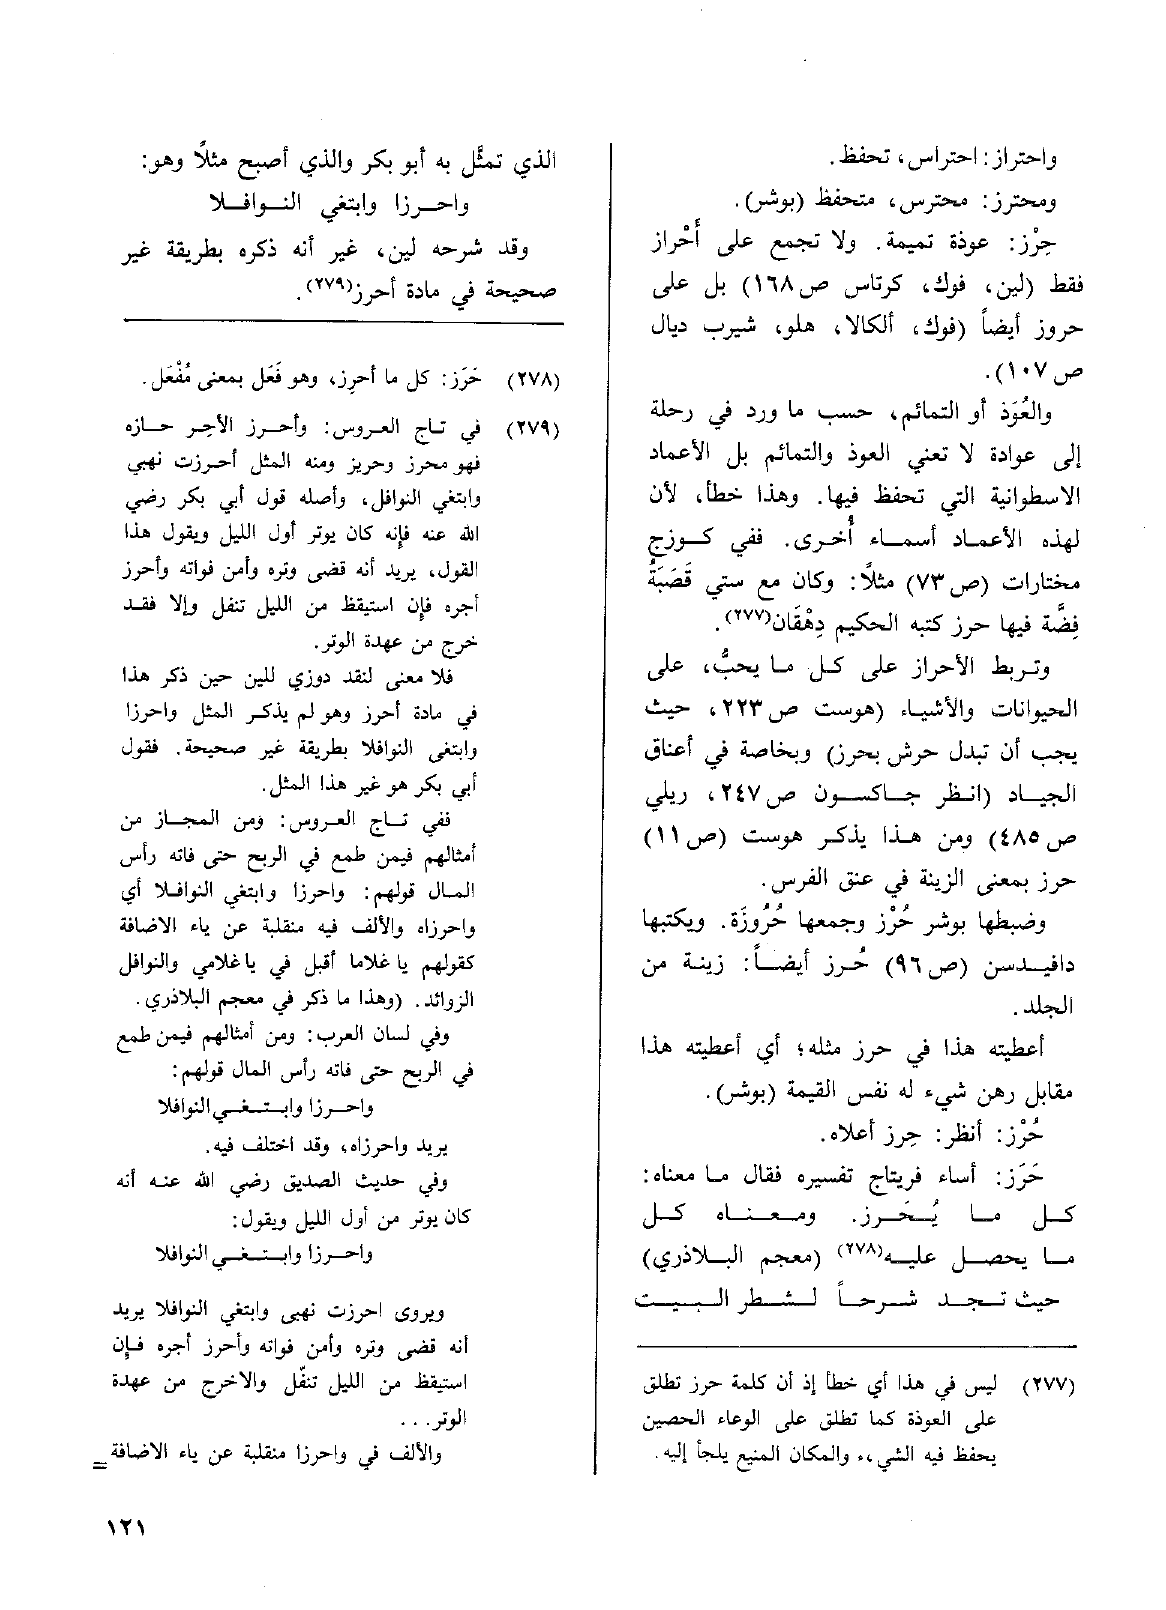 واحتراز: احتراس، تحفظ.
ومحترز: محترس، متحفظ (بوشر).
حِرْز: عوذة تميمة. ولا تجمع على أَحْراز
فقط (لين، فوك، كرتاس ص١٦٨) بل على
حروز أيضاً (فوك، ألكالا، هلو، شيرب ديال
ص١٠٧).
والعُوَذ أو التمائم، حسب ما ورد في رحلة
إلى عوادة لا تعني العوذ والتمائم بل الأعماد
الاسطوانية التي تحفظ فيها. وهذا خطأ، لأن
لهذه الأعماد أسماء أُخرى. ففي كوزج
مختارات (ص٧٣) مثلاً: وكان مع ستي قَصَبَةُ
فِضَّة فيها حرز كتبه الحكيم دِهْقَان(٢٧٧).
وتربط الأحراز على كل ما يحبُّ، على
الحيوانات والأشياء (هوست ص٢٢٣، حيث
يجب أن تبدل حرش بحرز) وبخاصة في أعناق
الجياد (انظر جاكسون ص٢٤٧، ريلي
ص٤٨٥) ومن هذا يذكر هوست (ص١١)
حرز بمعنى الزينة في عنق الفرس.
وضبطها بوشر حُرْز وجمعها حُرُوزَة. ويكتبها
دافيدسن (ص٩٦) حُرز أيضاً: زينة من
الجلد.
أعطيته هذا في حرز مثله؛ أي أعطيته هذا
مقابل رهن شيء له نفس القيمة (بوشر).
حُرْز: أنظر: حِرز أعلاه.
حَرَز: أساء فريتاج تفسيره فقال ما معناه:
كل ما يُحَرز. ومعناه كل
ما يحصل عليه(٢٧٨) (معجم البلاذري)
حيث تجد شرحاً لشطر البيت
(٢٧٧) ليس في هذا أي خطأ إذ أن كلمة حرز تطلق
على العوذة كما تطلق على الوعاء الحصين
يحفظ فيه الشيء، والمكان المنيع يلجأ إليه.
الذي تمثَّل به أبو بكر والذي أصبح مثلاً وهو:
واحرزا وابتغي النوافلا
وقد شرحه لين، غير أنه ذكره بطريقة غير
صحيحة في مادة أحرز(٢٧٩).
(٢٧٨) حَرَز: كل ما أحرِز، وهو فَعَل بمعنى مُفْعَل.
(٢٧٩) في تاج العروس: وأحرز الأجر حازه
فهو محرز وحريز ومنه المثل أحرزت نهبي
وابتغي النوافل، وأصله قول أبي بكر رضي
الله عنه فإنه كان يوتر أول الليل ويقول هذا
القول، يريد أنه قضى وتره وأمن فواته وأحرز
أجره فإن استيقظ من الليل تنفل وإلا فقد
خرج من عهدة الوتر.
فلا معنى لنقد دوزي للين حين ذكر هذا
في مادة أحرز وهو لم يذكر المثل واحرزا
وابتغى النوافلا بطريقة غير صحيحة. فقول
أبي بكر هو غير هذا المثل.
ففي تاج العروس: ومن المجاز من
أمثالهم فيمن طمع في الربح حتى فاته رأس
المال قولهم: واحرزا وابتغي النوافلا أي
واحرزاه والألف فيه منقلبة عن ياء الاضافة
كقولهم يا غلاما أقبل في يا غلامي والنوافل
الزوائد. (وهذا ما ذكر في معجم البلاذري.
وفي لسان العرب: ومن أمثالهم فيمن طمع
في الربح حتى فاته رأس المال قولهم:
واحرزا وابتغي النوافلا
يريد واحرزاه، وقد اختلف فيه.
وفي حديث الصديق رضي الله عنه أنه
كان يوتر من أول الليل ويقول:
واحرزا وابتغي النوافلا
ويروى احرزت نهبى وابتغي النوافلا يريد
أنه قضى وتره وأمن فواته وأحرز أجره فإن
استيقظ من الليل تنفّل والاخرج من عهدة
الوتر...
والألف في واحرزا منقلبة عن ياء الاضافة =
١٢١